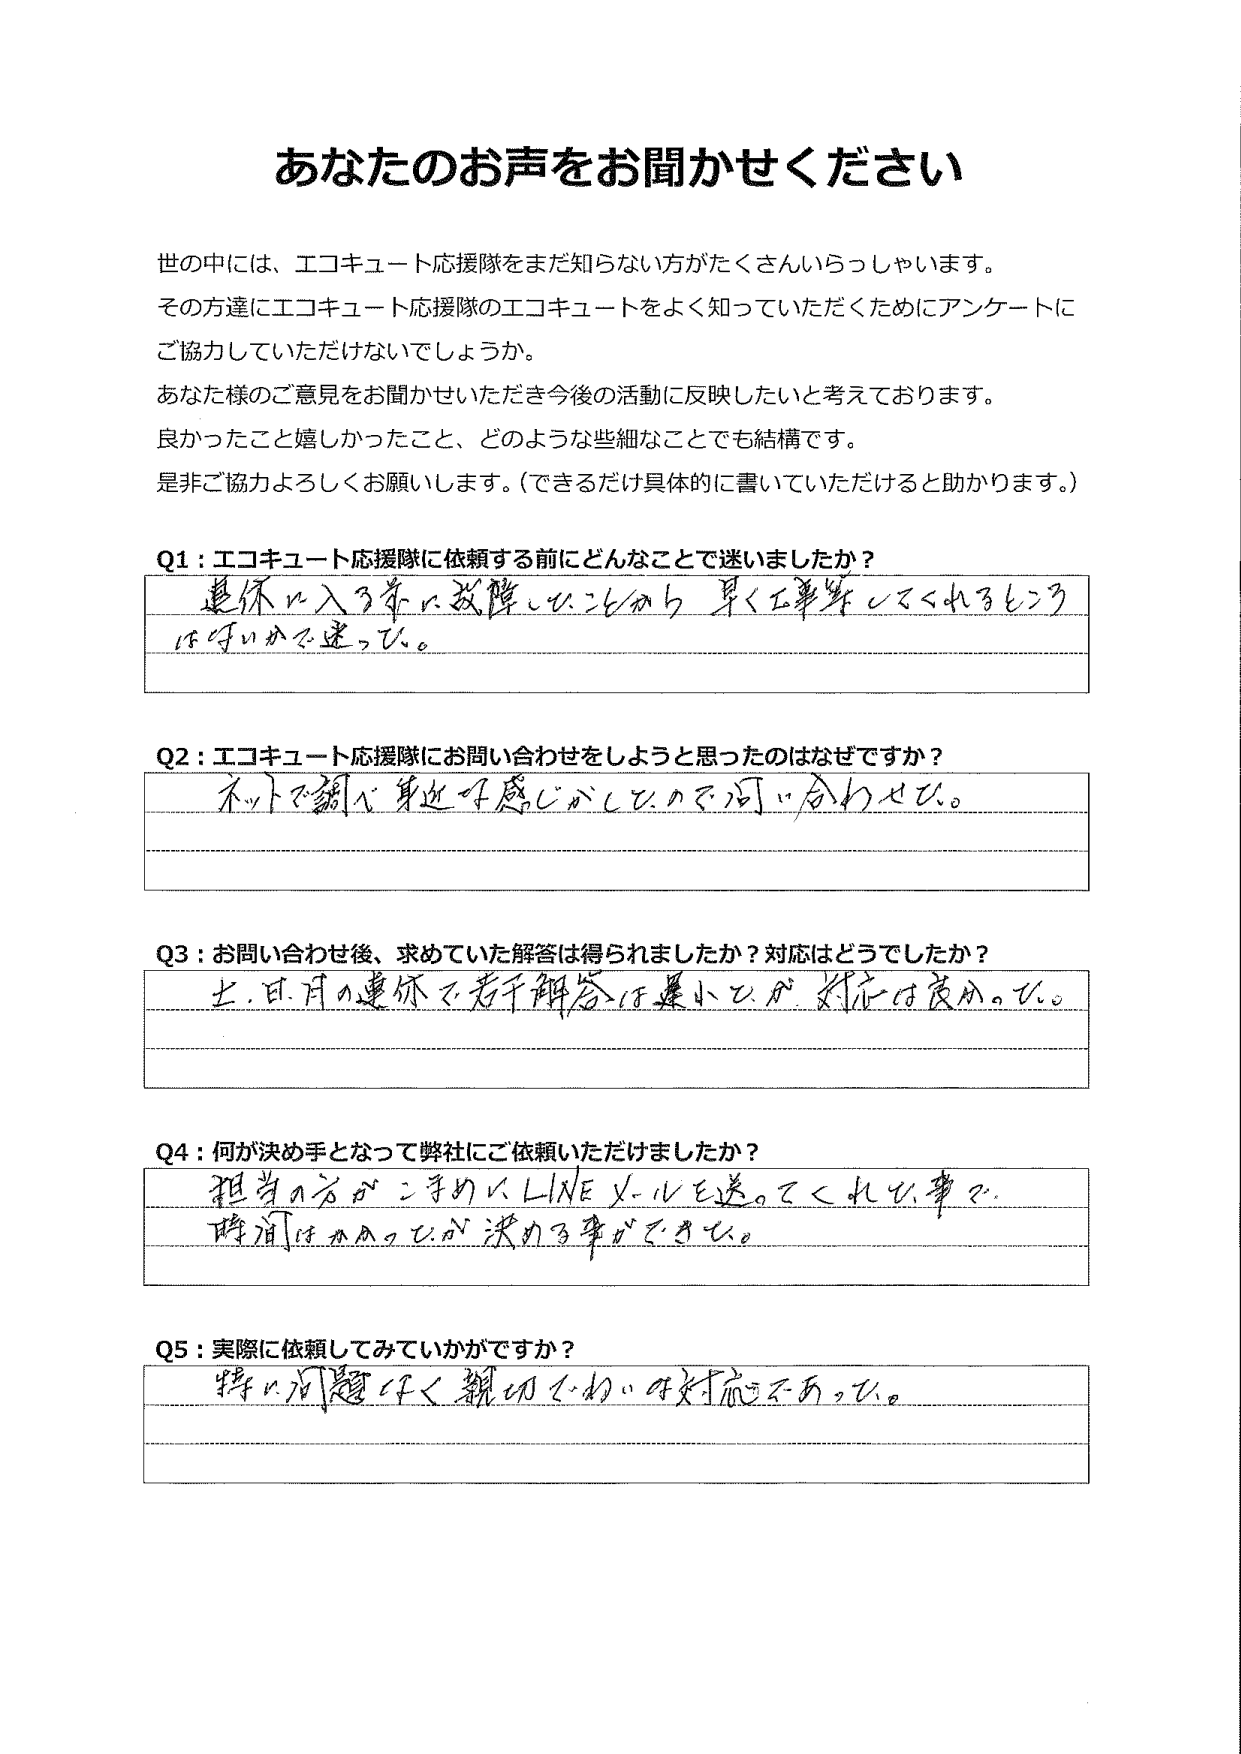 あなたのお声をお聞かせください
世の中には、エコキュート応援隊をまだ知らない方がたくさんいらっしゃいます。
その方達にエコキュート応援隊のエコキュートをよく知っていただくためにアンケートに
ご協力していただけないでしょうか。
あなた様のご意見をお聞かせいただき今後の活動に反映したいと考えております。
良かったこと嬉しかったこと、どのような些細なことでも結構です。
是非ご協力よろしくお願いします。（できるだけ具体的に書いていただけると助かります。）
Q1：エコキュート応援隊に依頼する前にどんなことで迷いましたか？
連休に入る前に故障したことから 早く工事等してくれるところ
はないかで迷った。
Q2：エコキュート応援隊にお問い合わせをしようと思ったのはなぜですか？
ネットで調べ 身近な感じがしたので問い合わせた。
Q3：お問い合わせ後、求めていた解答は得られましたか？対応はどうでしたか？
土.日.月の連休で若干解答は遅れたが 対応は良かった。
Q4：何が決め手となって弊社にご依頼いただけましたか？
担当の方がこまめにLINEメールを送ってくれた事で
時間はかかったが決める事ができた。
Q5：実際に依頼してみていかがですか？
特に問題なく親切ていねいな対応であった。